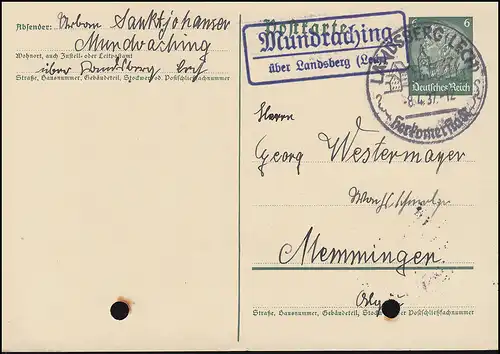 Absender: Urban Sanktjohanser
Mundraching
Wohnort, auch Zustell- oder Leitpostamt
über Landsberg Lech
Straße, Hausnummer, Gebäudeteil, Stockwerk od. Postschließfachnummer
Postkarte
Mundraching
über Landsberg (Lech)
6 6
Deutsches Reich
LANDSBERG (LECH)
-8.4.37.-12
Herkomerstadt
Herrn
Georg Westermayer
Memmingen
Allgäu
Straße, Hausnummer, Gebäudeteil, Stockwerk oder Postschließfachnummer